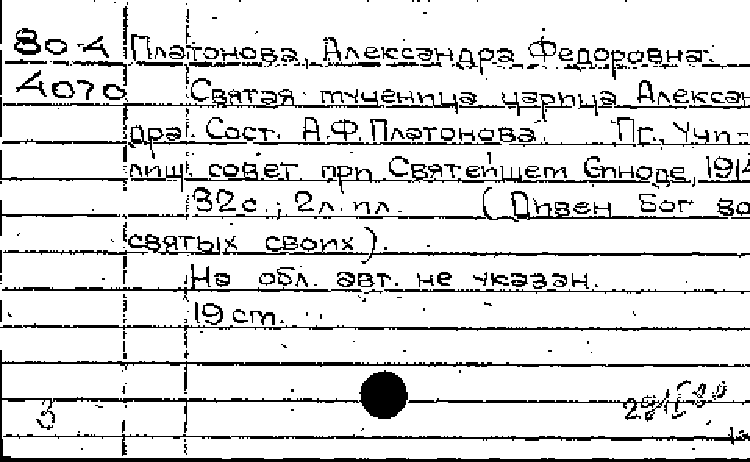 80-4 Платонова, Александра Федоровна.
4070 Святая мученица царица Алексан
дра. Сост. А.Ф. Платонова. Пг., Учи-
лищ. совет при Святейшем Синоде, 1914
32 с.; 2 л. ил. (Дивен Бог во
святых своих).
На обл. авт. не указан.
19 см.
3